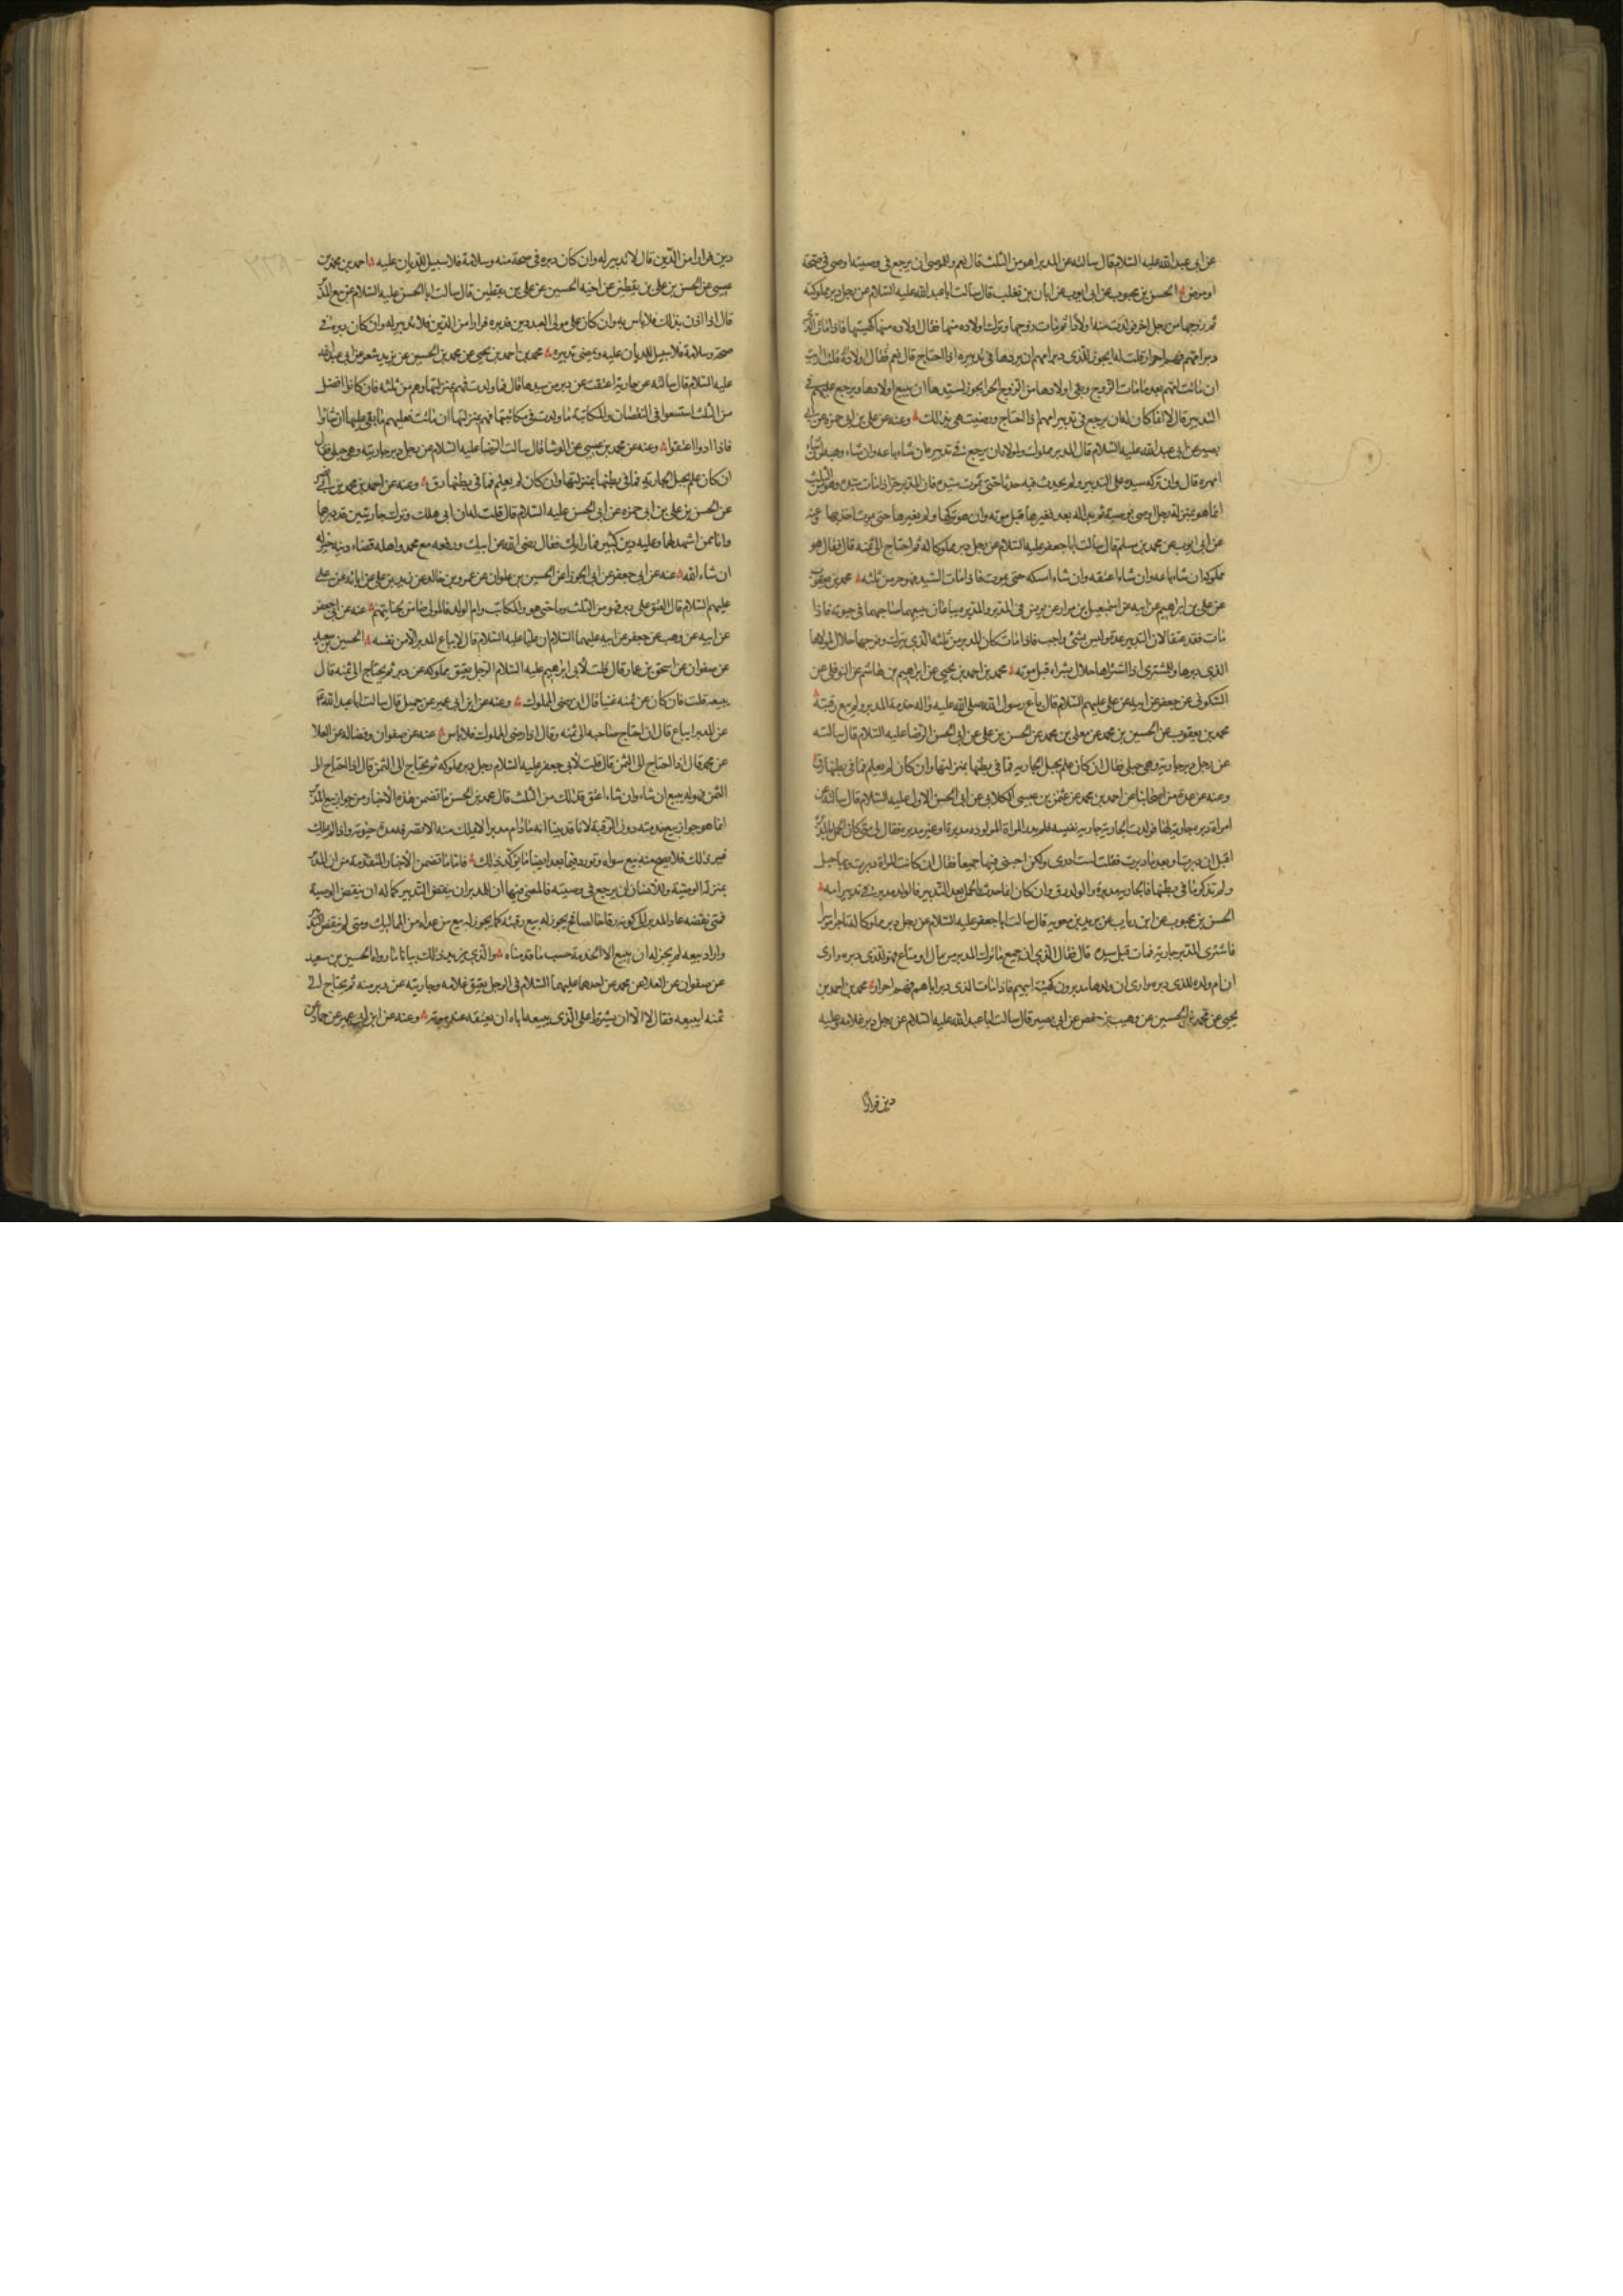 عن ابي عبد الله عليه السلام قال سالته عن المدبر اهو من الثلث قال نعم وللموصى ان يرجع في وصيته اوصى في صحة
او مرض الحسن بن محبوب عن ابي ايوب عن ابان بن تغلب قال سالت ابا عبد الله عليه السلام عن رجل دبر مملوكته
ثم زوجها من رجل اخر فولدت منه اولادا ثم مات زوجها وترك اولاده منها فقال اولاده منها كهيئتها فاذا مات الذي
دبر امهم فهم احرار قلت له ايجوز للذى دبر امهم ان يردها في تدبيره اذا احتاج قال نعم قلت ارايت
ان ماتت امهم بعد ما مات الزوج وبقي اولادها من الزوج الحر ايجوز لسيدها ان يبيع اولادها ويرجع عليهم في
التدبير قال لا انما كان له ان يرجع في تدبير امهم اذا احتاج ورضيت هي بذلك وعنه عن علي بن ابي حمزة عن ابي
بصير عن ابي عبد الله عليه السلام قال المدبر مملوك ولمولاه ان يرجع في تدبيره ان شاء باعه وان شاء وهبه وان شاء
امهره قال وان تركه سيده على التدبير ولم يحدث فيه حدثا حتى يموت سيده فان المدبر حر اذا مات سيده وهو من الثلث
انما هو بمنزلة رجل اوصى بوصية ثم بدا له بعد فغيرها قبل موته وان هو تركها ولم يغيرها حتى يموت اخذ بها عنه
عن ابي ايوب عن محمد بن مسلم قال سالت ابا جعفر عليه السلام عن رجل دبر مملوكا له ثم احتاج الى ثمنه قال فقال هو
مملوكه ان شاء باعه وان شاء اعتقه وان شاء امسكه حتى يموت فاذا مات السيد فهو حر من ثلثه محمد بن يعقوب
عن علي بن ابراهيم عن ابيه عن اسمعيل بن مرار عن يونس في المدبر والمدبره يباعان يبيعهما صاحبهما في حيوته فاذا
مات فقد عتقا لان التدبير عدة وليس بشئ واجب فاذا مات كان المدبر من ثلثه الذي يترك وفرجها حلال لمولاها
الذي دبرها وللمشترى اذا اشتراها حلال بشراه قبل موته محمد بن احمد بن يحيى عن ابراهيم بن هاشم عن النوفلي عن
السكوني عن جعفر عن ابيه عن علي عليهم السلام قال باع رسول الله صلى الله عليه واله خدمة المدبر ولم يبع رقبته
محمد بن يعقوب عن الحسين بن محمد عن معلى بن محمد عن الحسن بن علي عن ابي الحسن الرضا عليه السلام قال سالته
عن رجل دبر جاريه وهي حبلى فقال ان كان علم بحبل الجاريه فما في بطنها بمنزلتها وان كان لم يعلم فما في بطنها رق
وعنه عن عدة من اصحابنا عن احمد بن محمد عن عثمن بن عيسى الكلابي عن ابي الحسن الاول عليه السلام قال سالته عن
امراة دبرت جارية لها فولدت الجارية جاريه نفيسه فلم يدر المراة المولودة مدبرة او غير مدبرة فقال لي متى كان الحمل بالمدبره
اقبل ان دبرت او بعد ما دبرت فقلت لست ادرى ولكن اجبنى فيهما جميعا فقال ان كانت المراة دبرت وبها حبل
ولم تذكر ما في بطنها فالجاريه مدبرة والولد رق وان كان انما حدث الحمل بعد التدبير فالولد مدبر في تدبير امه
الحسن بن محبوب عن ابن رياب عن بريد بن معويه قال سالت ابا جعفر عليه السلام عن رجل دبر مملوكا له تاجرا موسرا
فاشترى المدبر جارية فمات قبل سيده قال فقال ارى ان جميع ما ترك المدبر من مال او متاع فهو للذى دبره وارى
ان ام ولده للذى دبره وارى ان ولدها مدبرون كهيئة ابيهم فاذا مات الذى دبر اباهم فهم احرار محمد بن احمد بن
يحيى عن محمد بن الحسين عن وهيب بن حفص عن ابي بصير قال سالت ابا عبد الله عليه السلام عن رجل دبر غلامه وعليه
دين فرارا
دين فرارا من الدين قال لا تدبير له وان كان دبره في صحة منه وسلامة فلا سبيل للديان عليه احمد بن محمد بن
عيسى عن الحسن بن علي بن يقطين عن اخيه الحسين عن علي بن يقطين قال سالت ابا الحسن عليه السلام عن بيع المدبر
قال اذا اذن بذلك فلا باس به وان كان على مولى العبد دين فدبره فرارا من الدين فلا تدبير له وان كان دبره في
صحة وسلامة فلا سبيل للديان عليه ويمضى تدبيره محمد بن احمد بن يحيى عن محمد بن الحسين عن يزيد شعر عن ابي عبد الله
عليه السلام قال سالته عن جارية اعتقت عن دبر من سيدها قال فما ولدت فهم بمنزلتها وهم من ثلثه فان كانوا افضل
من الثلث استسعوا في النقصان والمكاتبة ما ولدت في مكاتبتها فهم بمنزلتها ان ماتت فعليهم ما بقى عليها ان شاؤا
فاذا ادوا اعتقوا وعنه عن محمد بن عيسى عن الوشا قال سالت الرضا عليه السلام عن رجل دبر جاريته وهي حبلى فقال
ان كان علم بحبل الجاريه فما في بطنها بمنزلتها وان كان لم يعلم فما في بطنها رق وعنه عن احمد بن محمد بن ابي نصر
عن الحسن بن علي بن ابي حمزه عن ابي الحسن عليه السلام قال قلت له ان ابي هلك وترك جاريتين قد دبرهما
وانا ممن اشهد لهما وعليه دين كثير فما رايك فقال رضى الله عن ابيك ورفعه مع محمد واهله قضاء دينه خير له
ان شاء الله عنه عن ابي جعفر عن ابي الجوزا عن الحسين بن علوان عن عمرو بن خالد عن زيد بن علي عن ابائه عن علي
عليهم السلام قال المعتق على دبر فهو من الثلث وما جنى هو والمكاتب وام الولد فالمولى ضامن لجنايتهم عنه عن ابي جعفر
عن ابيه عن وهب عن جعفر عن ابيه عليهما السلام ان عليا عليه السلام قال لا يباع المدبر الا من نفسه الحسين بن سعيد
عن صفوان عن اسحق بن عمار قال قلت لابي ابرهيم عليه السلام الرجل يعتق مملوكه عن دبر ثم يحتاج الى ثمنه قال
يبيعه قلت فان كان عن ثمنه غنيا قال ان رضى المملوك وعنه عن ابن ابي عمير عن جميل قال سالت ابا عبد الله ع
عن المدبر ايباع قال ان احتاج صاحبه الى ثمنه وقال اذا رضى المملوك فلا باس عنه عن صفوان وفضاله عن العلا
عن محمد قال اذا احتاج الى الثمن قال قلت لابي جعفر عليه السلام رجل دبر مملوكه ثم يحتاج الى الثمن قال اذا احتاج الى
الثمن فهو له يبيع ان شاء وان شاء اعتق فذلك من الثلث قال محمد بن الحسن ما تضمن هذه الاخبار من جواز بيع المدبر
انما هو جواز بيع خدمته دون الرقبة لانا قد بينا انه ما دام مدبرا لا يملك منه الا تصرفه مدة حيوته واذا لم يملك
غير ذلك فلا يصح منه بيع سواه ونورد فيما بعد ايضا ما يؤكد ذلك فاما ما تضمن الاخبار المتقدمة من ان المدبر
بمنزلة الوصية وللانسان ان يرجع في وصيته فالمعنى فيها ان للمدبر ان ينقض التدبير كما له ان ينقض الوصية
فمتى نقضه عاد المدبر الى كونه رقا خالصا فيجوز له بيع رقبته كما يجوز له بيع من عداه من المماليك ومتى لم ينقض التدبير
واراد بيعه لم يجز له ان يبيع الا الخدمة حسب ما قدمناه والذي يزيد ذلك بيانا ما رواه الحسين بن سعيد
عن صفوان عن العلا عن محمد عن احدهما عليهما السلام في الرجل يعتق غلامه وجاريته عن دبر منه ثم يحتاج الى
ثمنه ايبيعه فقال لا الا ان يشترط على الذى يبيعه اياه ان يعتقه عند موته وعنه عن ابن ابي عمير عن حماد عن